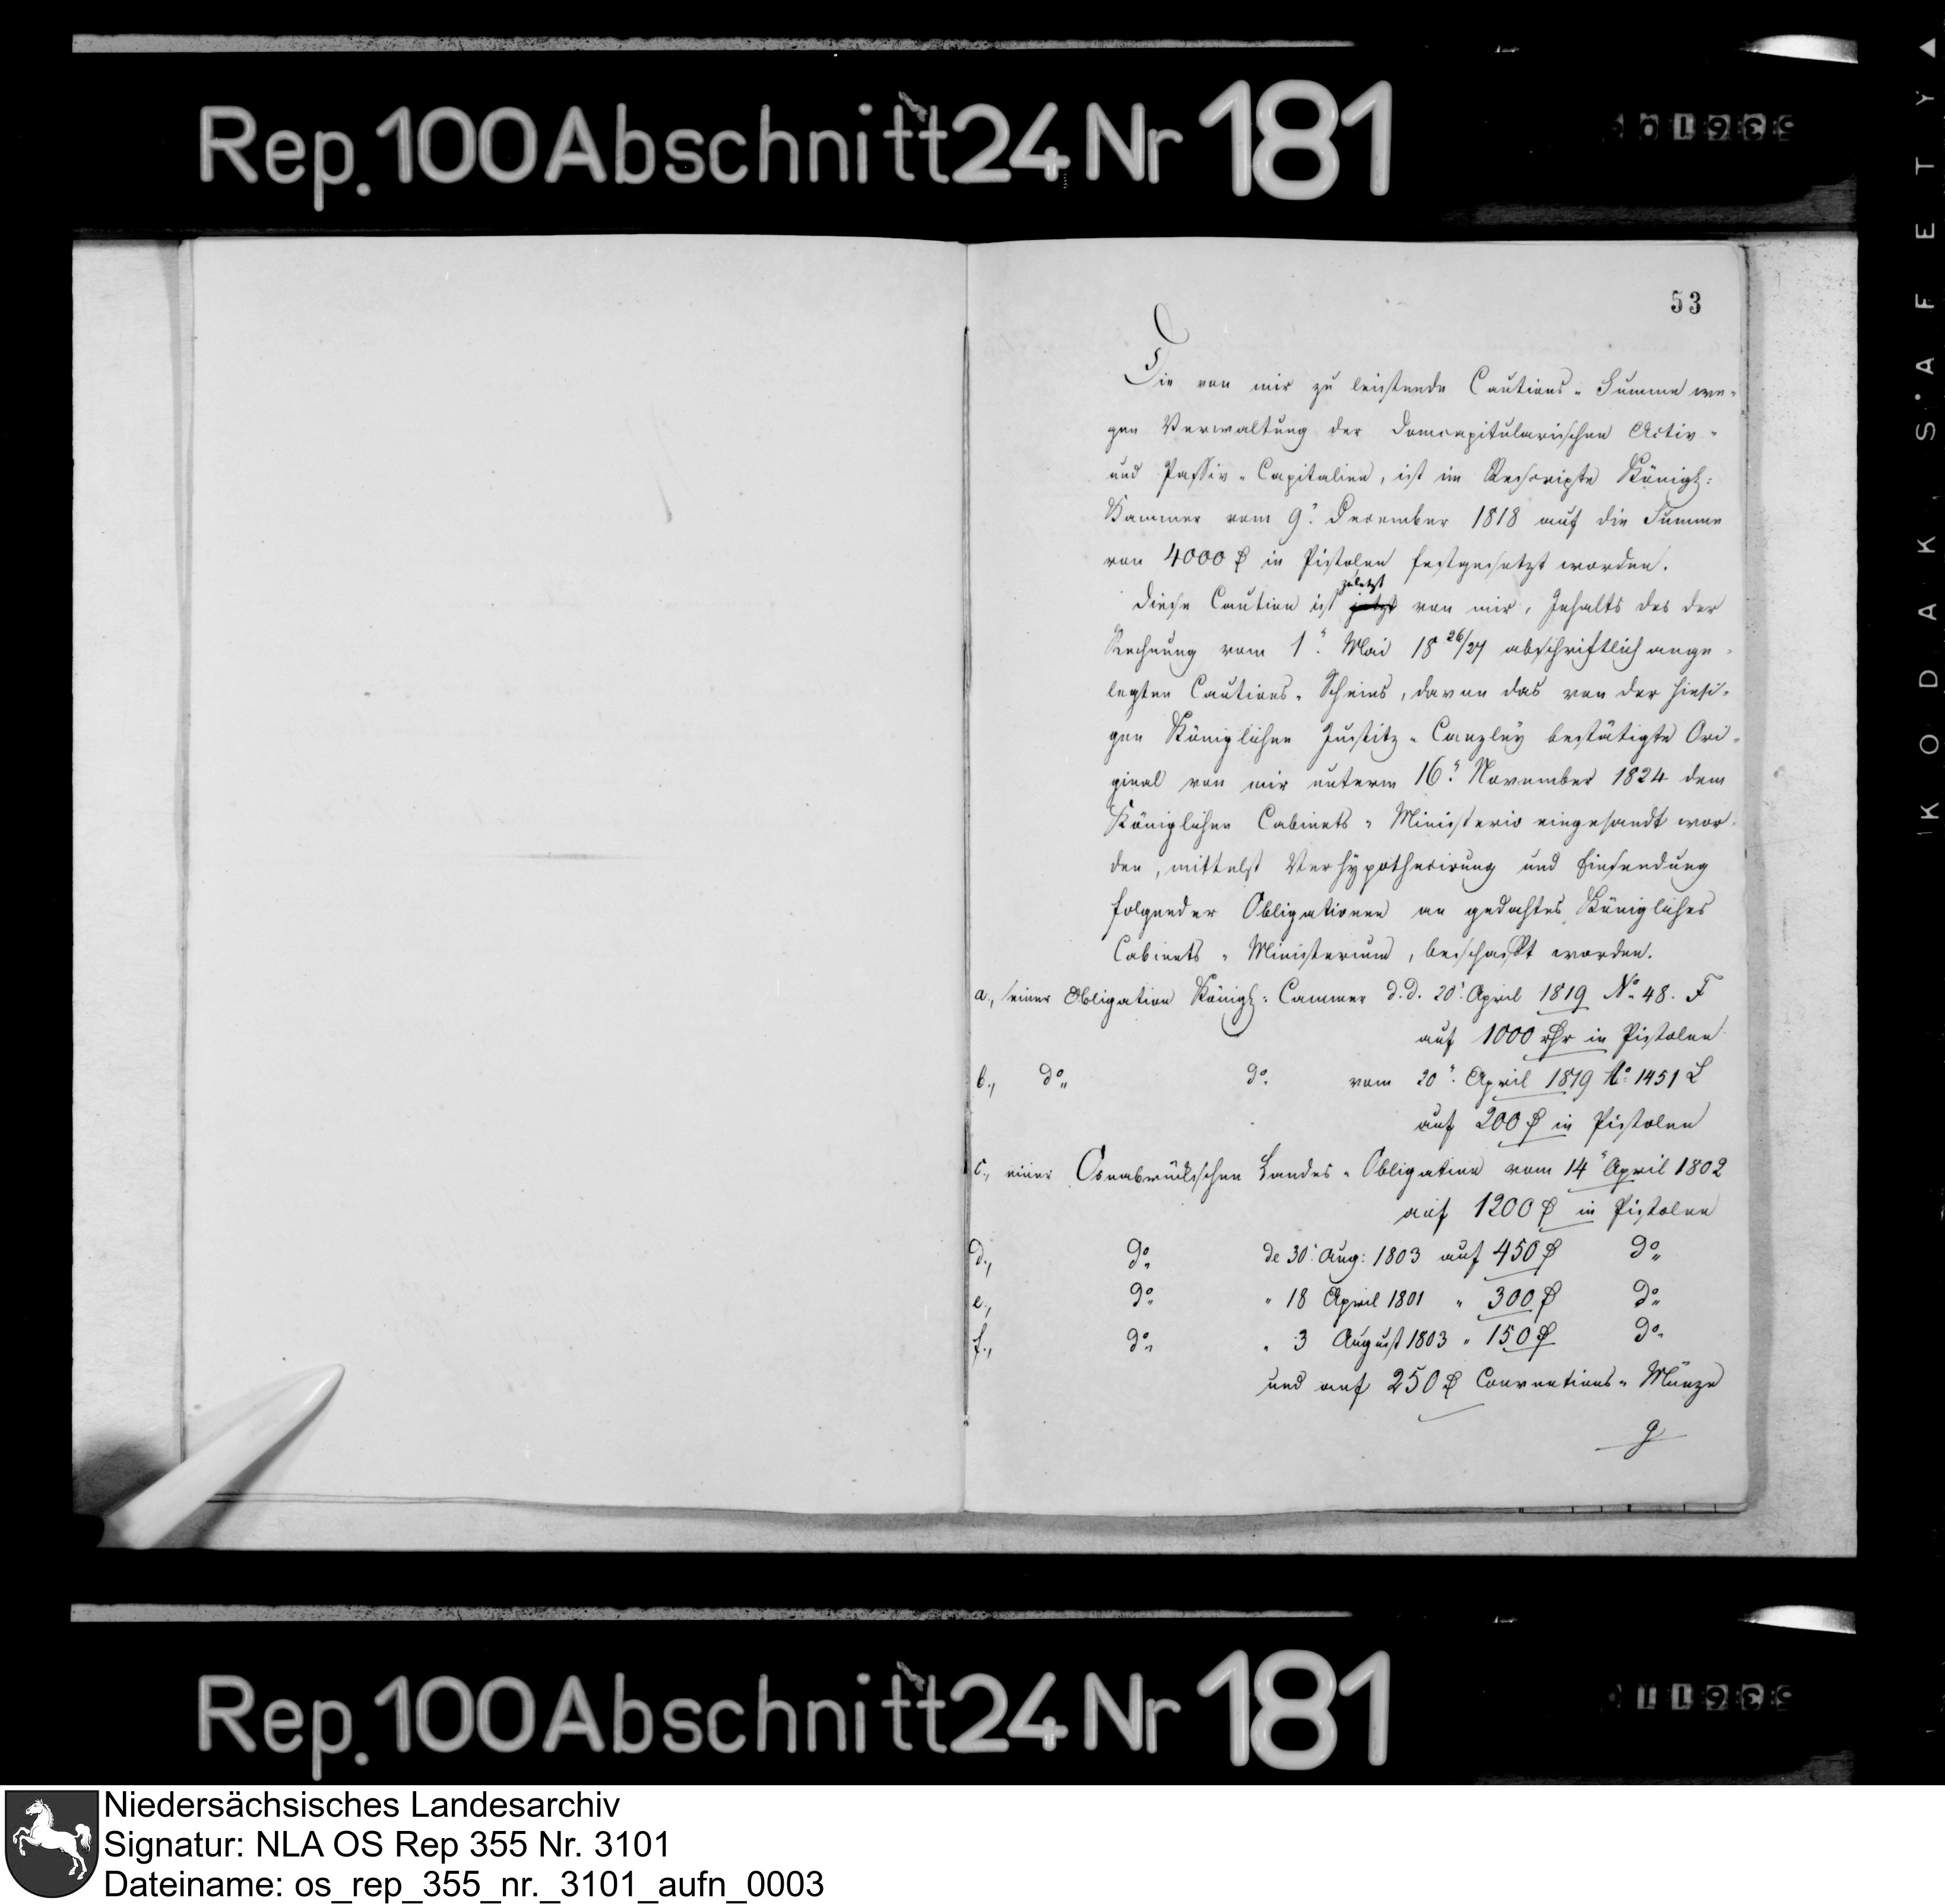 Rep.100Abschnitt24Nr 181
53610
KODAK SAFETY
53
Die von mir zu leistende Cautions-Summe we-
gen Verwaltung der Domcapitularischen Activ-
und Passiv-Capitalien, ist im Rescripte Königl:
Kammer vom 9ͭ. December 1818 auf die Summe
von 4000 ₰ in Pistolen festgesetzt worden.
zuletzt
Diese Caution ist jetzt von mir, Inhalts des der
Rechnung vom 1ͭ. Mai 18 26/27 abschriftlich ange-
legten Cautions-Scheins, davon das von der hiesi-
gen Königlichen Justitz-Canzley bestätigte Ori-
ginal von mir unterm 16ͭ. November 1824 dem
Königlichen Cabinets-Ministerio eingesandt wor-
den, mittelst Verhypothecirung und Einsendung
folgender Obligationen an gedachtes Königliches
Cabinets-Ministerium, beschafft worden.
a., einer Obligation Königl: Cammer d.d. 20ͭ. April 1819 No. 48. F
auf 1000 rthr in Pistolen
b., do. do. vom 20ͭ. April 1819 No. 1451 L
auf 200 ₰ in Pistolen
c., einer Osnabrückschen Landes-Obligation vom 14ͭ April 1802
auf 1200 ₰ in Pistolen
d., do. de 30ͭ. Aug: 1803 auf 450 ₰ do.
e., do. " 18 April 1801 " 300 ₰ do.
f., do. " 3 August 1803 " 150 ₰ do.
und auf 250 ₰ Conventions-Münze
g
Rep.100Abschnitt24Nr 181
53611
Niedersächsisches Landesarchiv
Signatur: NLA OS Rep 355 Nr. 3101
Dateiname: os_rep_355_nr._3101_aufn_0003